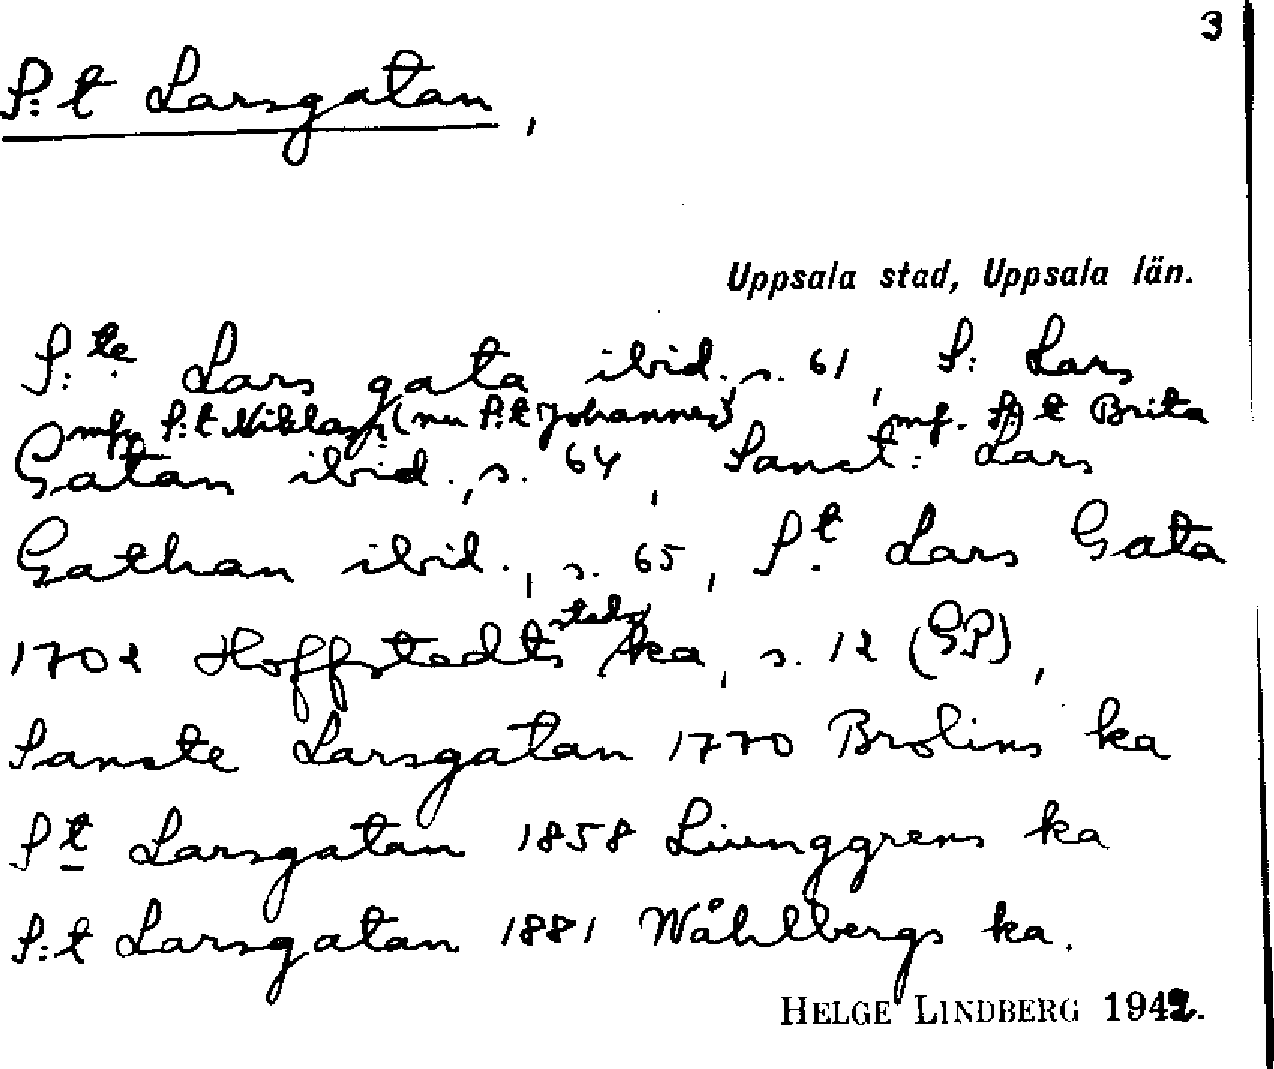 3
S:t Larsgatan,
Uppsala stad, Uppsala län.
S:te Lars gata ibid., s. 61, S: Lars
mf. S:t Niklas (nu S:t Johannes) mf. S:t Brita
Gatan ibid., s. 64, Sanct: Lars
Gathan ibid., s. 65, St. Lars Gata
1702 Hoffstedts ka, s. 12 (GP),
Sancte Larsgatan 1770 Brolins ka
St Larsgatan 1858 Liunggrens ka
S:t Larsgatan 1881 Wåhlbergs ka.
HELGE LINDBERG 1942.